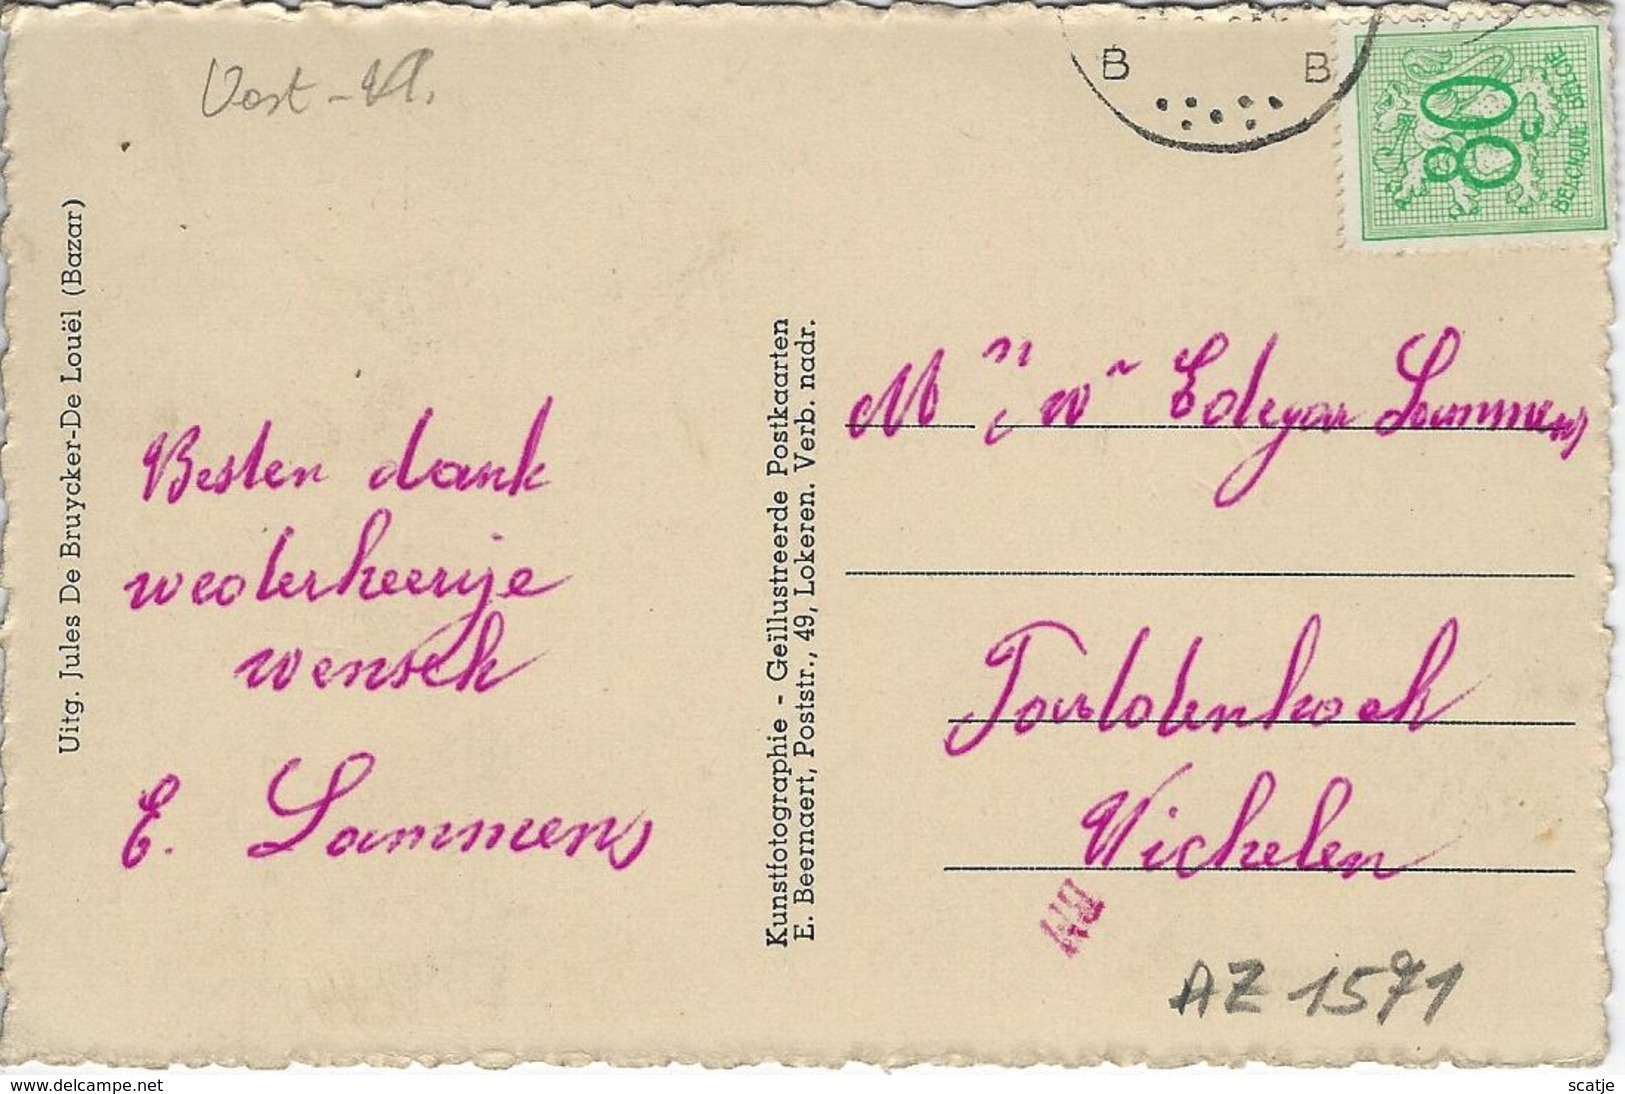 Oost-Vl.
B B
80c
BELGIQUE BELGIE
Uitg. Jules De Bruycker-De Louël (Bazar)
Besten dank
wederkeerije
wensch
E. Lammens
Kunstfotographie - Geïllustreerde Postkaarten
E. Beernaert, Poststr., 49, Lokeren. Verb. nadr.
Edegar Lammens
Wichelen
AZ 1571
www.delcampe.net
scatje